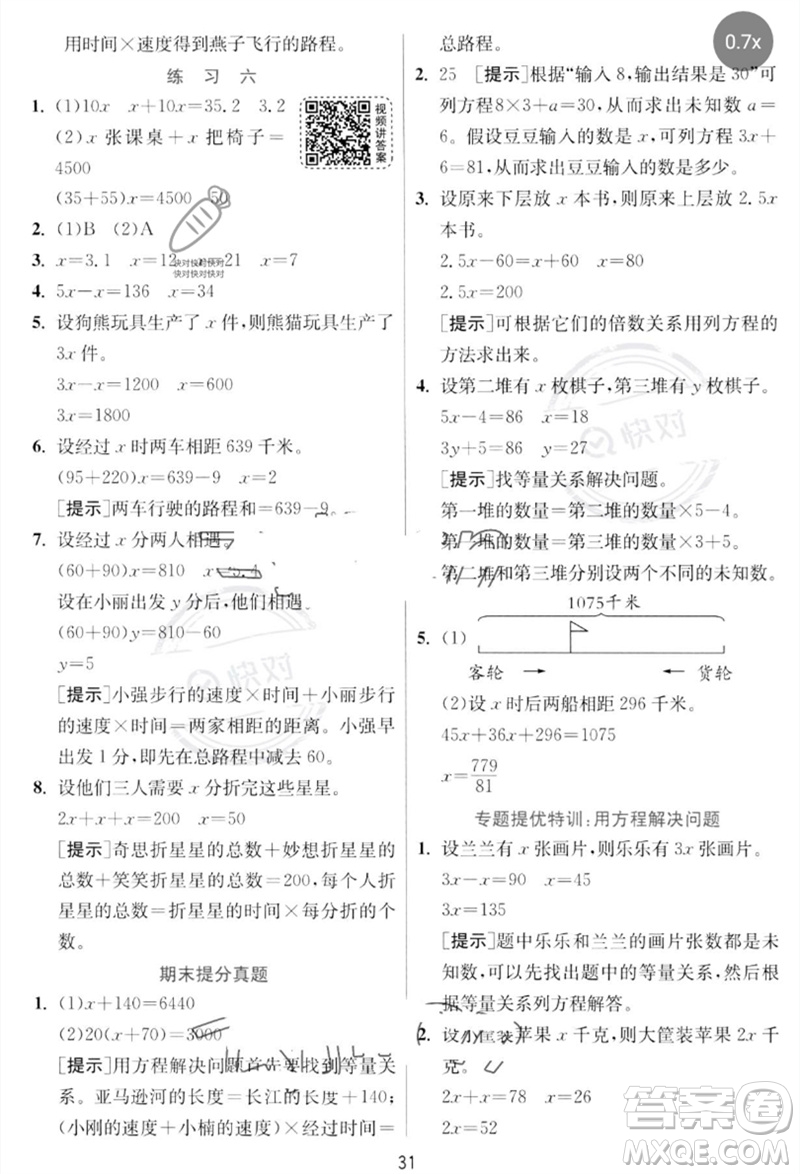 用时间×速度得到燕子飞行的路程。
练 习 六
1. (1)10x x+10x=35.2 3.2
(2)x 张课桌+x 把椅子=
4500
(35+55)x=4500 50
视频讲答案
2. (1)B (2)A
3. x=3.1 x=12 21 x=7
快对快对快对
快对快对快对
4. 5x-x=136 x=34
5. 设狗熊玩具生产了 x 件,则熊猫玩具生产了
3x 件。
3x-x=1200 x=600
3x=1800
6. 设经过 x 时两车相距 639 千米。
(95+220)x=639-9 x=2
[提示]两车行驶的路程和=639-9。
7. 设经过 x 分两人相遇。
(60+90)x=810 x=5.4
设在小丽出发 y 分后,他们相遇。
(60+90)y=810-60
y=5
[提示]小强步行的速度×时间+小丽步行
的速度×时间=两家相距的距离。小强早
出发 1 分,即在总路程中减去 60。
8. 设他们三人需要 x 分折完这些星星。
2x+x+x=200 x=50
[提示]奇思折星星的总数+妙想折星星的
总数+笑笑折星星的总数=200,每个人折
星星的总数=折星星的时间×每分折的个
数。
期末提分真题
1. (1)x+140=6440
(2)20(x+70)=3000
[提示]用方程解决问题首先要找到等量关
系。亚马逊河的长度=长江的长度+140;
(小刚的速度+小楠的速度)×经过时间=
总路程。
0.7x
2. 25 [提示]根据“输入 8,输出结果是 30”可
列方程8×3+a=30,从而求出未知数 a=
6。假设豆豆输入的数是 x,可列方程 3x+
6=81,从而求出豆豆输入的数是多少。
3. 设原来下层放 x 本书,则原来上层放 2.5x
本书。
2.5x-60=x+60 x=80
2.5x=200
[提示]可根据它们的倍数关系用列方程的
方法求出来。
4. 设第二堆有 x 枚棋子,第三堆有 y 枚棋子。
5x-4=86 x=18
3y+5=86 y=27
快对
[提示]找等量关系解决问题。
第一堆的数量=第二堆的数量×5-4。
第一堆的数量=第三堆的数量×3+5。
第二堆和第三堆分别设两个不同的未知数。
1075千米
5. (1)
客轮 货轮
(2)设 x 时后两船相距 296 千米。
45x+36x+296=1075
x=779/81
专题提优特训:用方程解决问题
1. 设兰兰有 x 张画片,则乐乐有 3x 张画片。
3x-x=90 x=45
3x=135
[提示]题中乐乐和兰兰的画片张数都是未
知的,可以先找出题中的等量关系,然后根
据等量关系列方程解答。
2. 设小筐装苹果 x 千克,则大筐装苹果 2x 千
克。
2x+x=78 x=26
2x=52
快对
31
答案圈
MXQE.COM